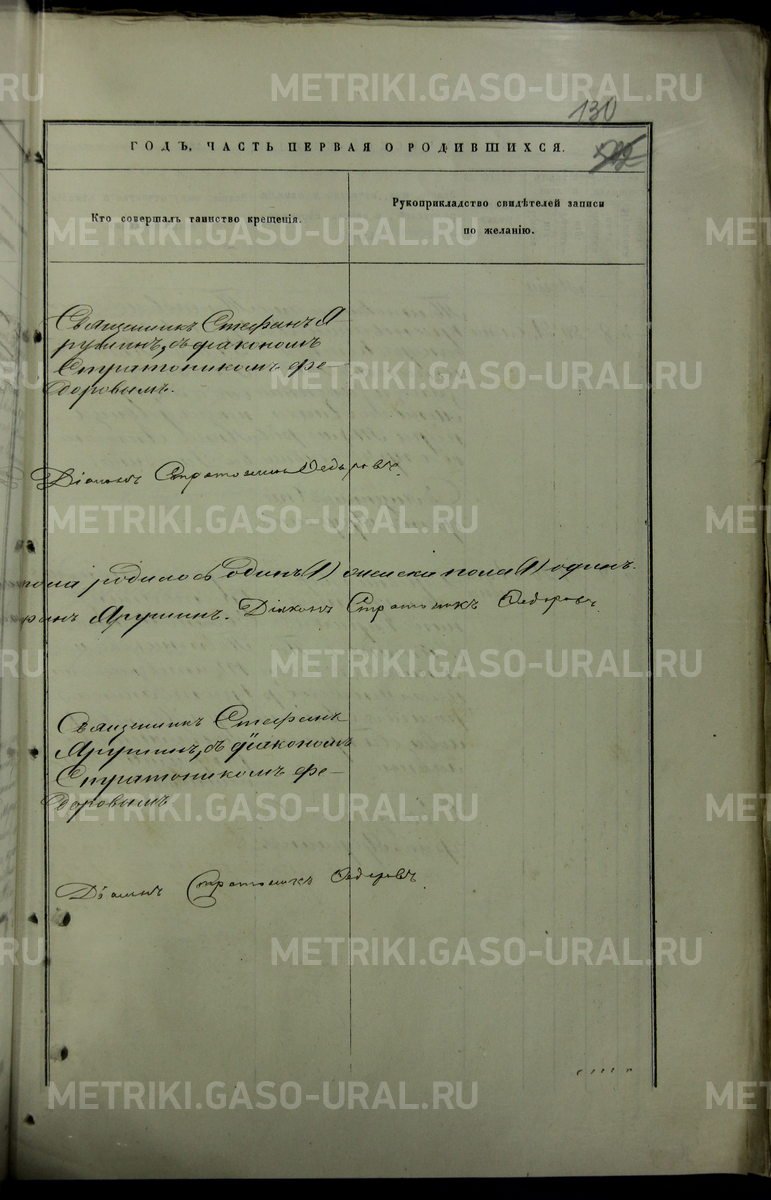 130
ГОДЪ, ЧАСТЬ ПЕРВАЯ О РОДИВШИХСЯ.
Кто совершалъ таинство крещенія.
Рукоприкладство свидѣтелей записи
по желанію.
Священникъ Стефанъ Я
рушинъ, съ діакономъ
Стратоникомъ Фе-
доровымъ.
Діаконъ Стратоникъ Ѳедоровъ.
пола родилось одинъ (1) женска пола (1) одинъ.
фанъ Ярушинъ. Діаконъ Стратоникъ Ѳедоровъ.
Священникъ Стефанъ
Ярушинъ, съ діакономъ
Стратоникомъ Фе-
доровымъ
Діаконъ Стратоникъ Ѳедоровъ.
METRIKI.GASO-URAL.RU